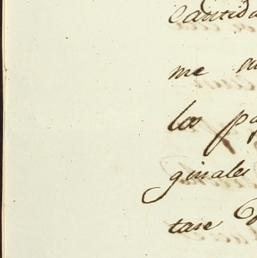 Cantida
me
los pa
ginales
tase